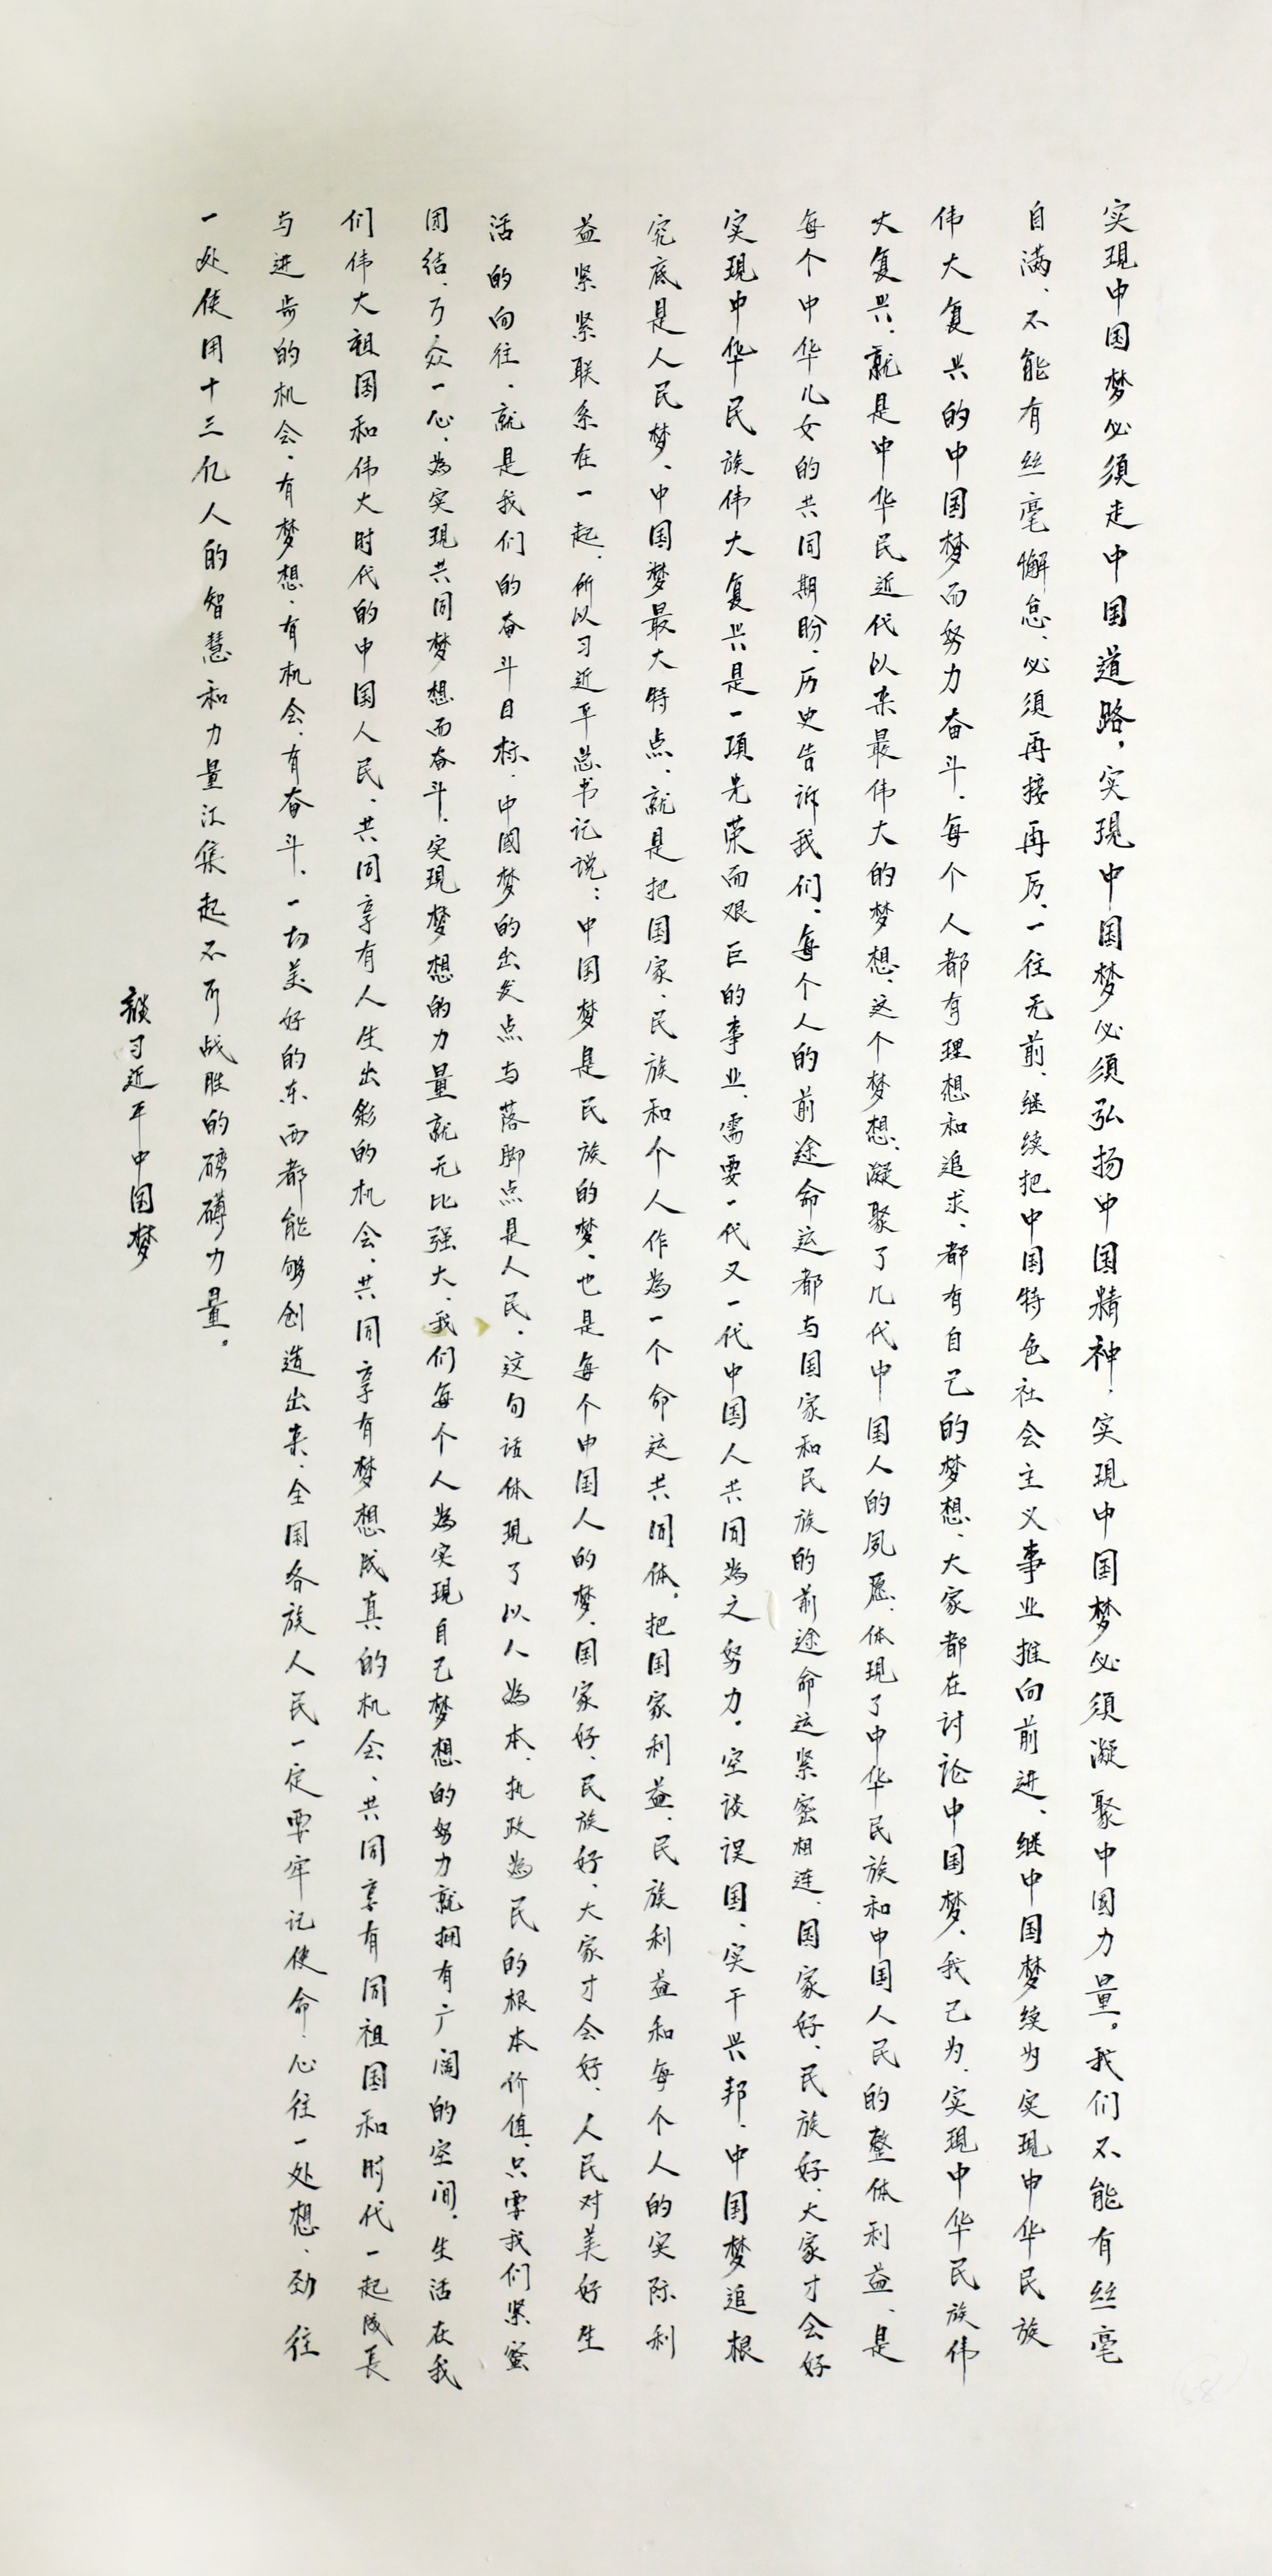 实现中国梦必须走中国道路，实现中国梦必须弘扬中国精神，实现中国梦必须凝聚中国力量。我们不能有丝毫
自满、不能有丝毫懈怠、必须再接再厉、一往无前、继续把中国特色社会主义事业推向前进、继中国梦续为实现中华民族
伟大复兴的中国梦而努力奋斗、每个人都有理想和追求、都有自己的梦想、大家都在讨论中国梦、我己为、实现中华民族伟
大复兴、就是中华民近代以来最伟大的梦想、这个梦想、凝聚了几代中国人的夙愿、体现了中华民族和中国人民的整体利益、是
每个中华儿女的共同期盼、历史告诉我们、每个人的前途命运都与国家和民族的前途命运紧密相连、国家好、民族好、大家才会好
实现中华民族伟大复兴是一项光荣而艰巨的事业、需要一代又一代中国人共同為之努力。空谈误国、实干兴邦、中国梦追根
究底是人民梦、中国梦最大特点、就是把国家、民族和个人作為一个命运共同体。把国家利益、民族利益和每个人的实际利
益紧紧联系在一起、所以习近平总书记说：中国梦是民族的梦、也是每个中国人的梦、国家好、民族好、大家才会好、人民对美好生
活的向往、就是我们的奋斗目标、中國梦的出发点与落脚点是人民、这句话体现了以人為本、执政為民的根本价值、只要我们紧蜜
团结、万众一心、為实现共同梦想而奋斗、实现梦想的力量就无比强大、我们每个人為实现自己梦想的努力就拥有广阔的空间。生活在我
们伟大祖国和伟大时代的中国人民、共同享有人生出彩的机会、共同享有梦想成真的机会、共同享有同祖国和时代一起成長
与进步的机会、有梦想、有机会、有奋斗、一切美好的东西都能够创造出来、全国各族人民一定要牢记使命、心往一处想、劲往
一处使用十三亿人的智慧和力量汇集起不可战胜的磅礴力量。
谈习近平中国梦